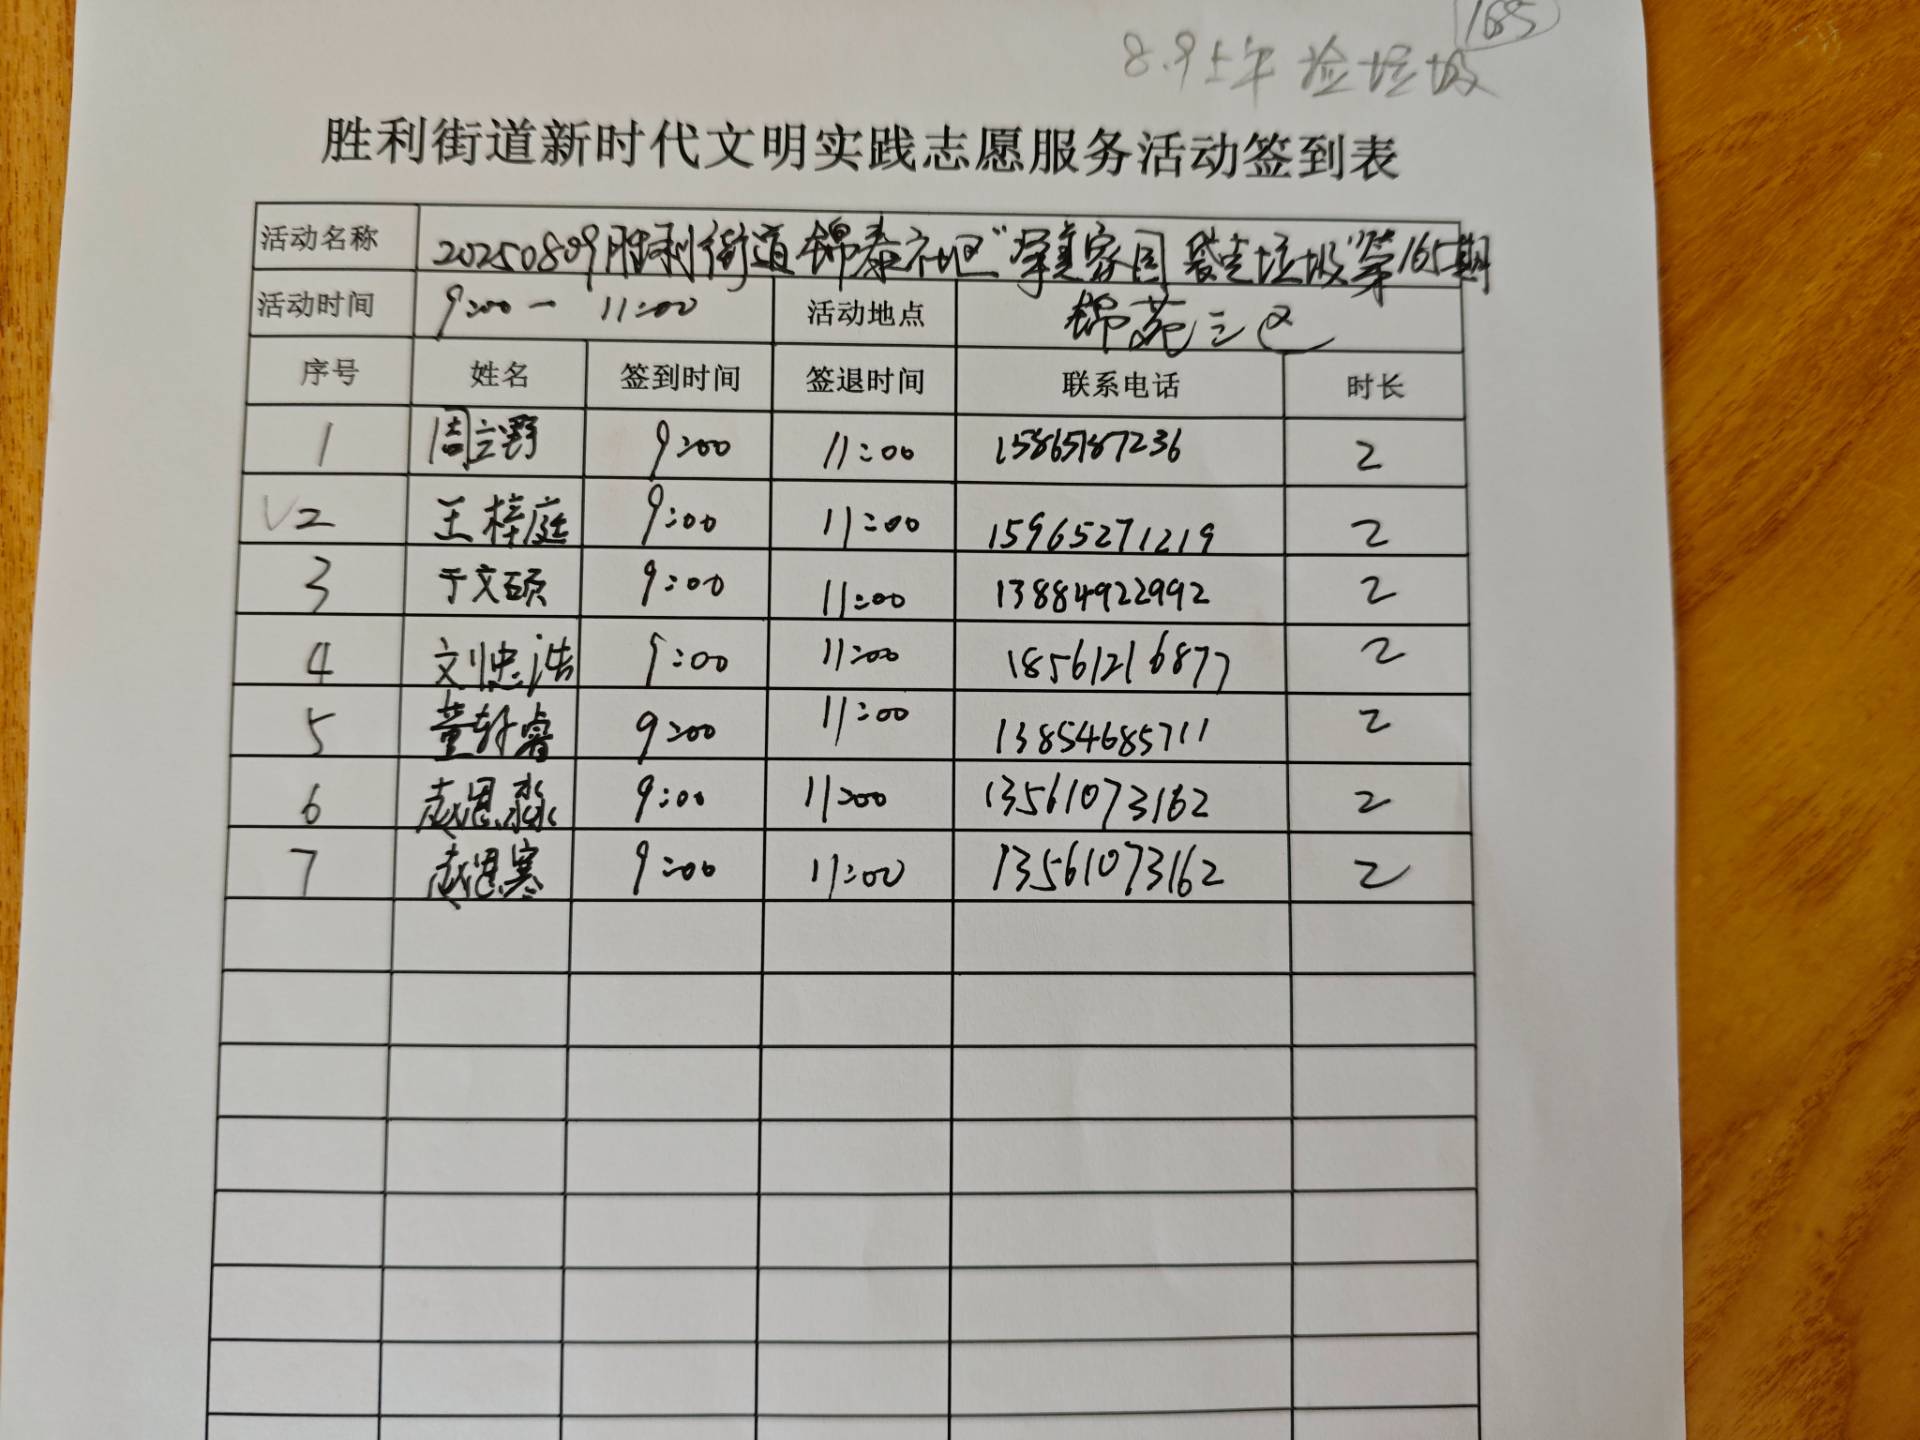 165
8.9上午 捡垃圾
胜利街道新时代文明实践志愿服务活动签到表
活动名称 20250809胜利街道锦泰社区"擎美家园 袋走垃圾"第165期
活动时间 9:00一 11:00 活动地点 锦苑三区
序号 姓名 签到时间 签退时间 联系电话 时长
1 周立野 9:00 11:00 15865187236 2
√2 王梓庭 9:00 11:00 15965271219 2
3 于文硕 9:00 11:00 13884922992 2
4 刘忠浩 9:00 11:00 18561216877 2
5 董轩睿 9:00 11:00 13854685711 2
6 赵恩淼 9:00 11:00 13561073162 2
7 赵恩寒 9:00 11:00 13561073162 2